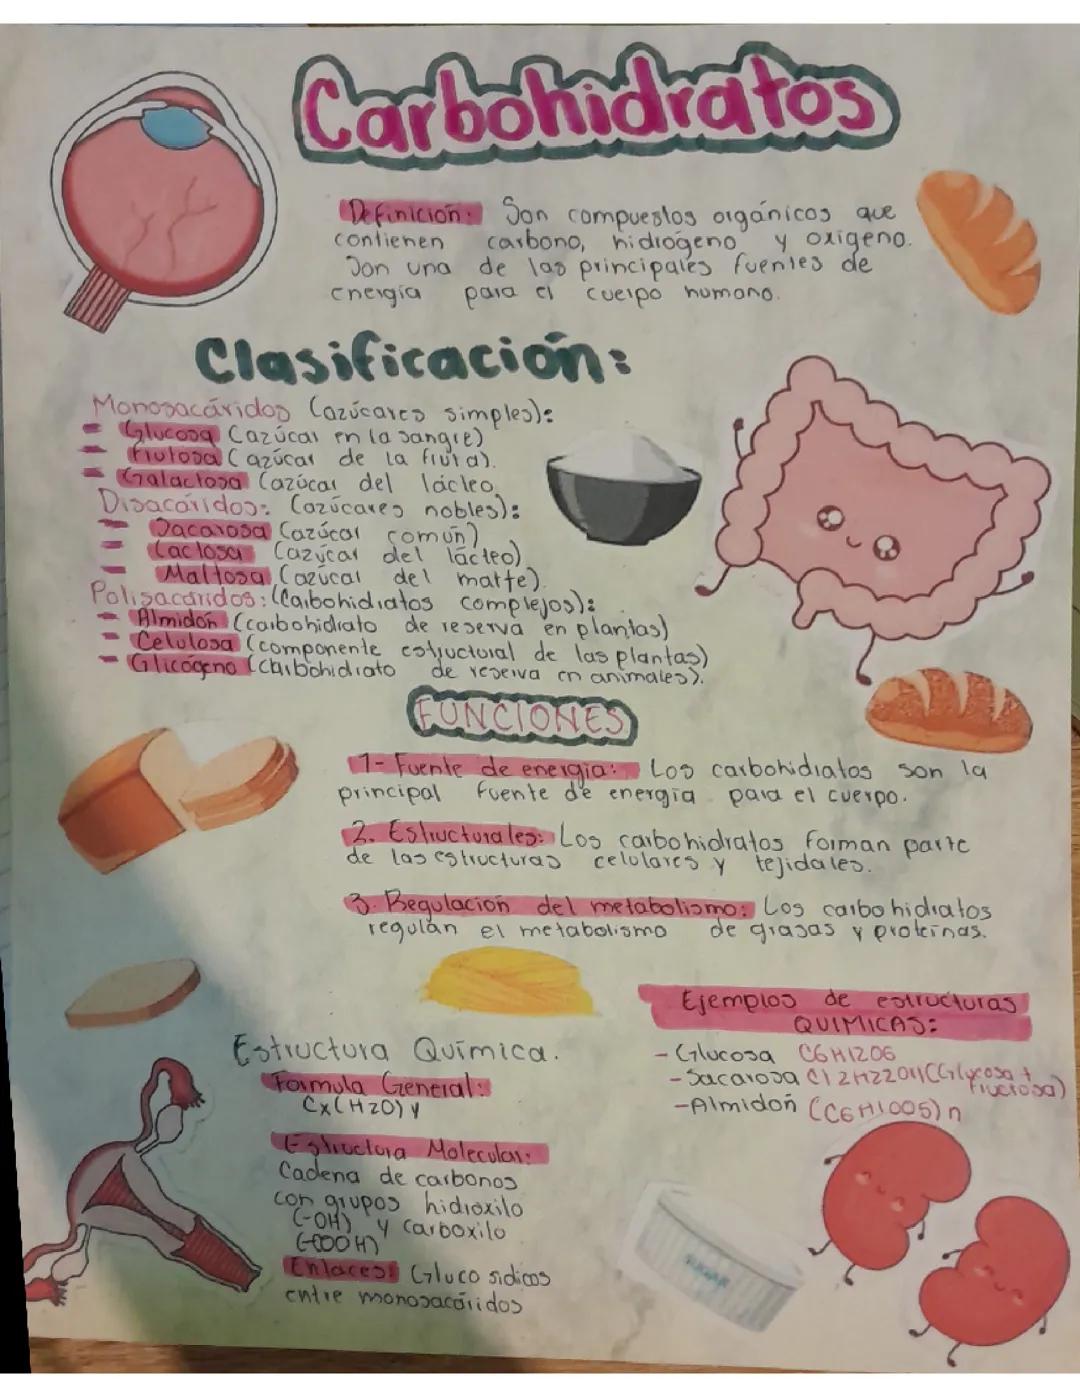 Carbohidratos
Definición: Son compuestos orgánicos que
contienen carbono, hidrógeno y oxigeno.
Son una de las principales fuentes de
energía para el cuerpo humano.
Clasificación:
Monosacáridos (azúcares simples):
- Glucosa (azúcar en la sangre)
- Frutosa (azúcar de la fruta).
- Galactosa (azúcar del lácteo
Disacáridos: (azúcares nobles):
- Sacarosa (azúcar común)
- Lactosa (azúcar del lácteo)
- Maltosa (azúcar del matte).
Polisacáridos: (Carbohidratos complejos):
- Almidón (carbohidrato de reserva en plantas)
- Celulosa (componente estructural de las plantas)
- Glicógeno (carbohidrato de reserva en animales).
FUNCIONES
1- Fuente de energia: Los carbohidratos son la
principal fuente de energía para el cuerpo.
2. Estructurales: Los carbohidratos forman parte
de las estructuras celulares y tejidales.
3. Regulación del metabolismo: Los carbohidratos
regulan el metabolismo de grasas y proteínas.
Estructura Química.
Formula General:
Cx(H2O)y
Estructura Molecular:
Cadena de carbonos
con grupos hidroxilo
(-OH) y carboxilo
(-COOH)
Enlaces: Glucosidicos
entre monosacáridos
Ejemplos de estructuras
QUIMICAS:
- Glucosa C6H12O6
- Sacarosa C12H22O11 (Glucosa +
Fructosa)
- Almidón (C6H10O5)n